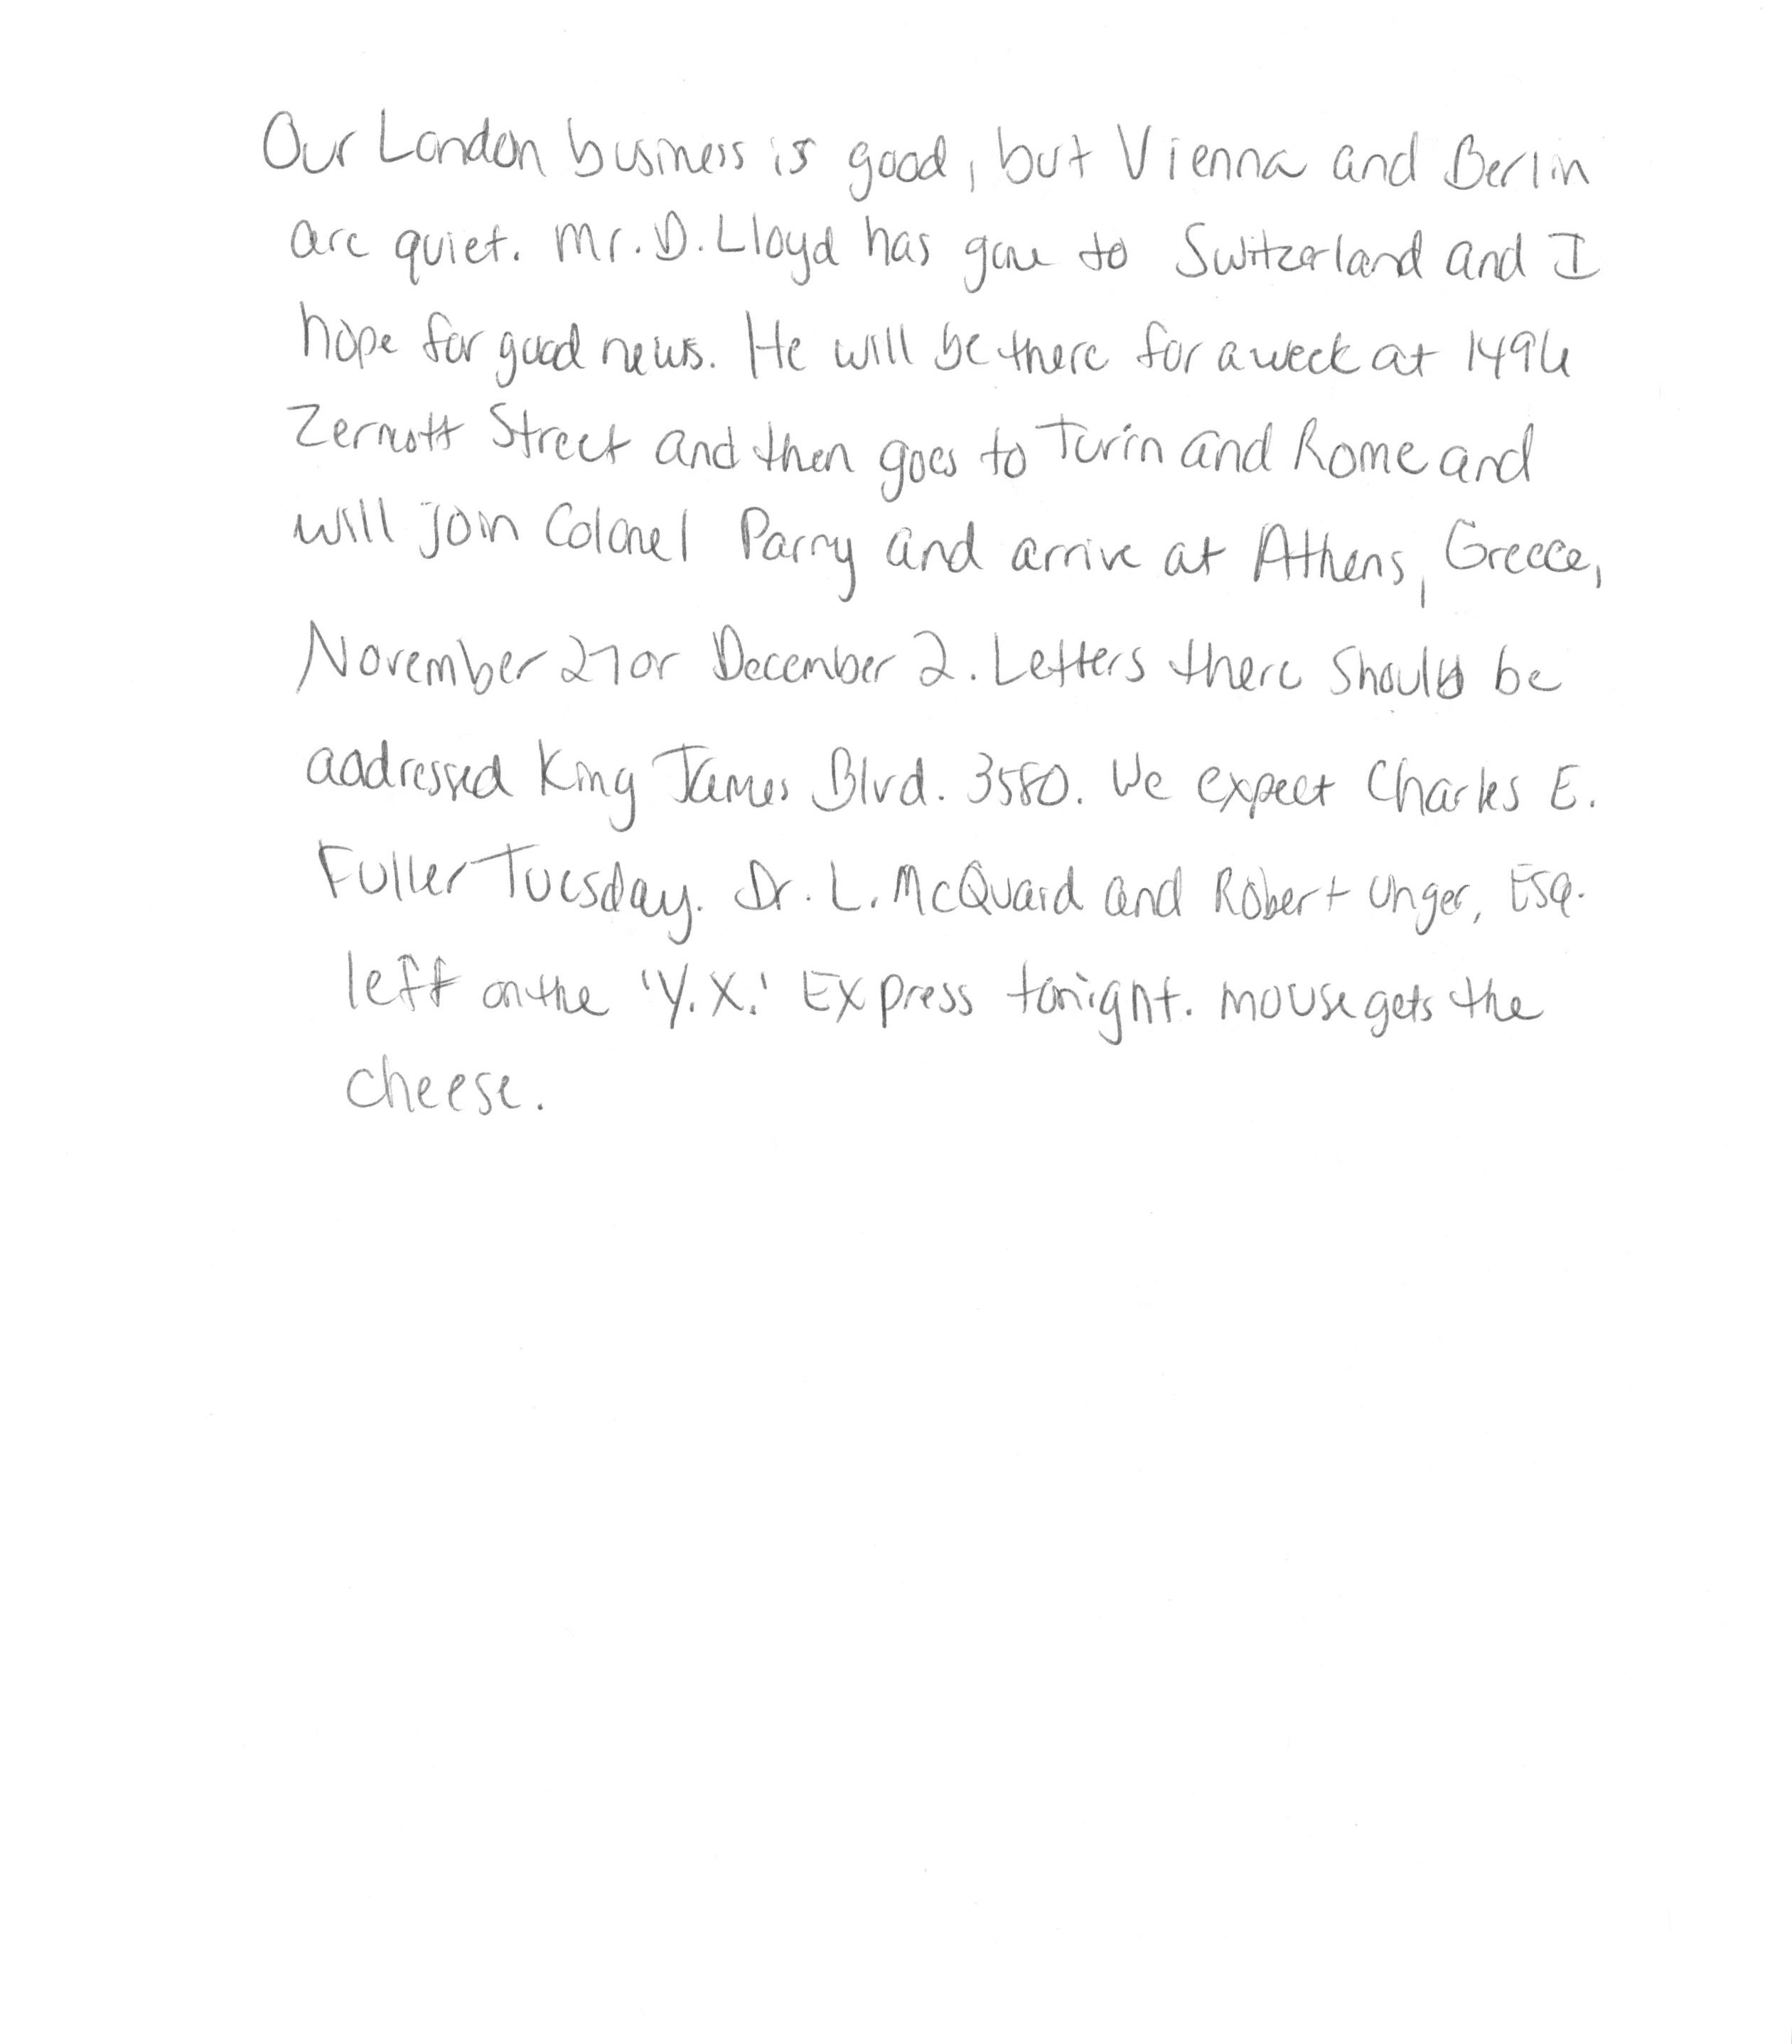 Our London business is good, but Vienna and Berlin
are quiet. Mr. D. Lloyd has gone to Switzerland and I
hope for good news. He will be there for a week at 1496
Zermott Street and then goes to Turin and Rome and
will join Colonel Parry and arrive at Athens, Greece,
November 27 or December 2. Letters there should be
addressed King James Blvd. 3580. We expect Charles E.
Fuller Tuesday. Dr. L. McQuaid and Robert Unger, Esq.
left on the 'Y.X.' Express tonight. mouse gets the
cheese.